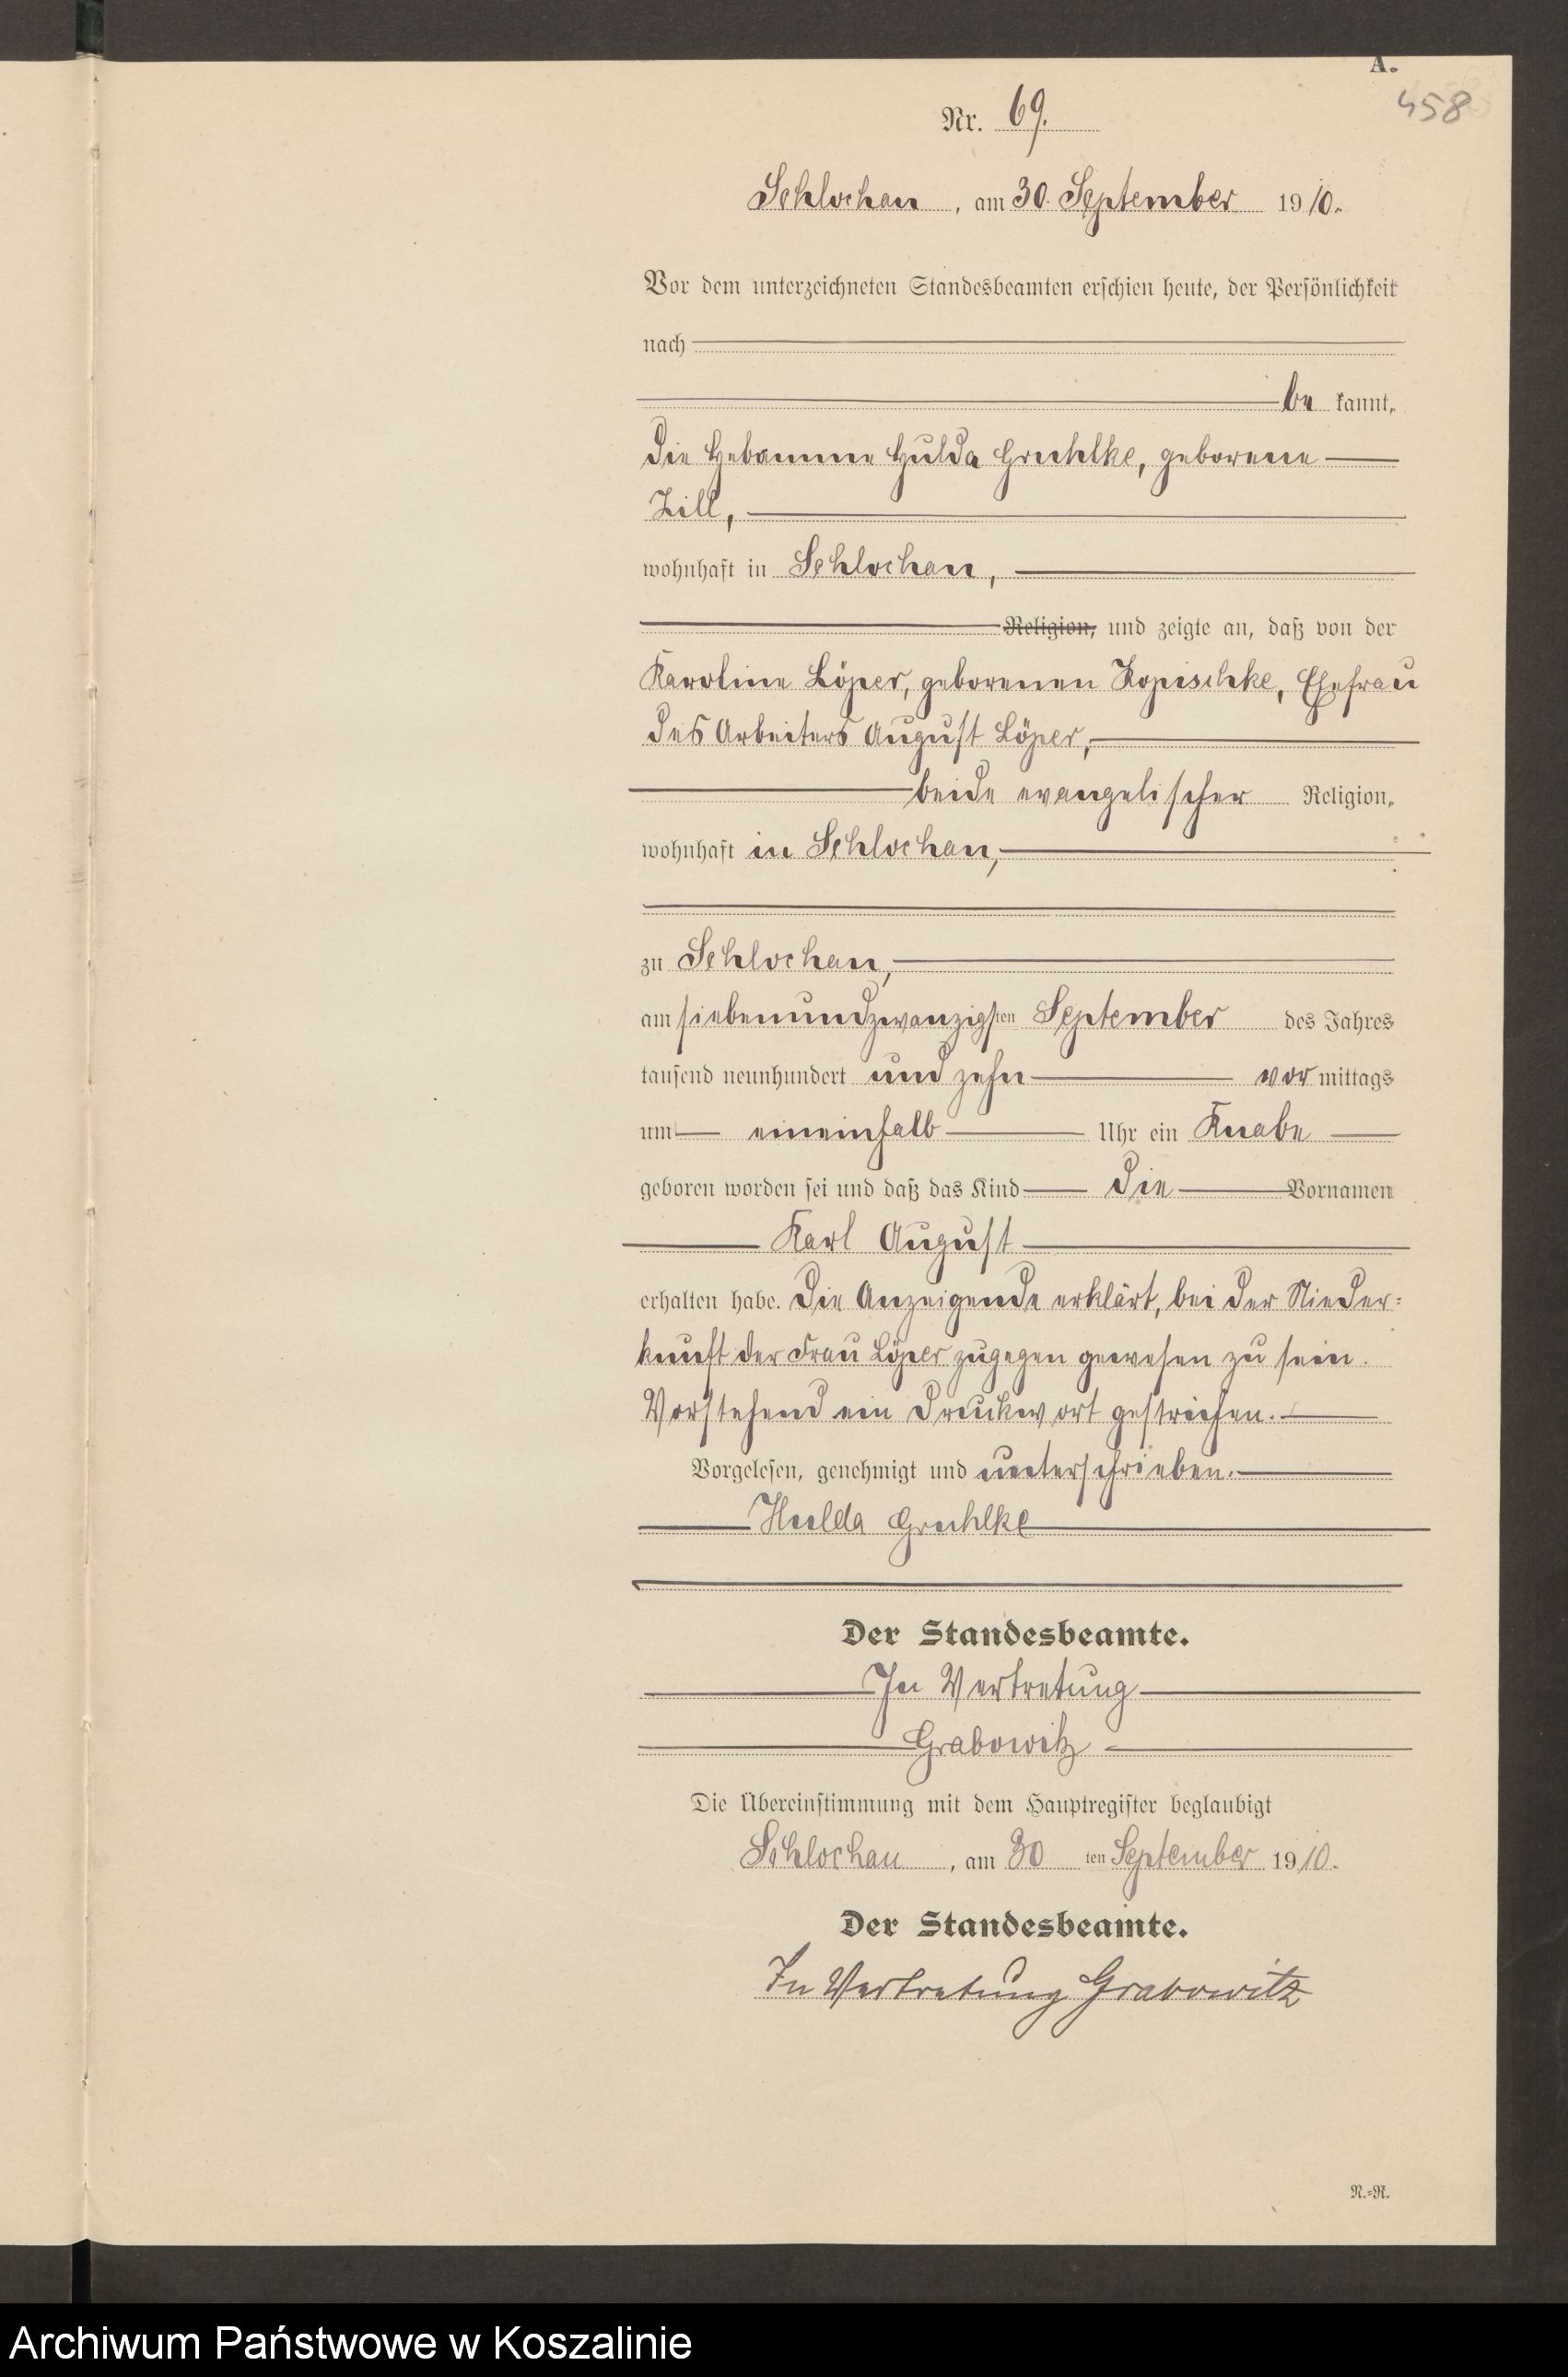 A.
458
Nr. 69.
Schlochau, am 30. September 1910.
Vor dem unterzeichneten Standesbeamten erschien heute, der Persönlichkeit
nach
be kannt,
die Hebamme Hulda Gruhlke, geborene
Zill,
wohnhaft in Schlochau,
Religion, und zeigte an, daß von der
Karoline Löper, geborenen Kopischke, Ehefrau
des Arbeiters August Löper,
beide evangelischer Religion,
wohnhaft in Schlochau,
zu Schlochau,
am siebenundzwanzigsten September des Jahres
tausend neunhundert und zehn vor mittags
um eineinhalb Uhr ein Knabe
geboren worden sei und daß das Kind die Vornamen
Karl August
erhalten habe. Die Anzeigende erklärt, bei der Nieder-
kunft der Frau Löper zugegen gewesen zu sein.
Vorstehend ein Druckwort gestrichen.
Vorgelesen, genehmigt und unterschrieben.
Hulda Gruhlke
Der Standesbeamte.
In Vertretung
Grabowitz
Die Übereinstimmung mit dem Hauptregister beglaubigt
Schlochau, am 30 ten September 1910.
Der Standesbeamte.
In Vertretung Grabowitz
N.-R.
Archiwum Państwowe w Koszalinie